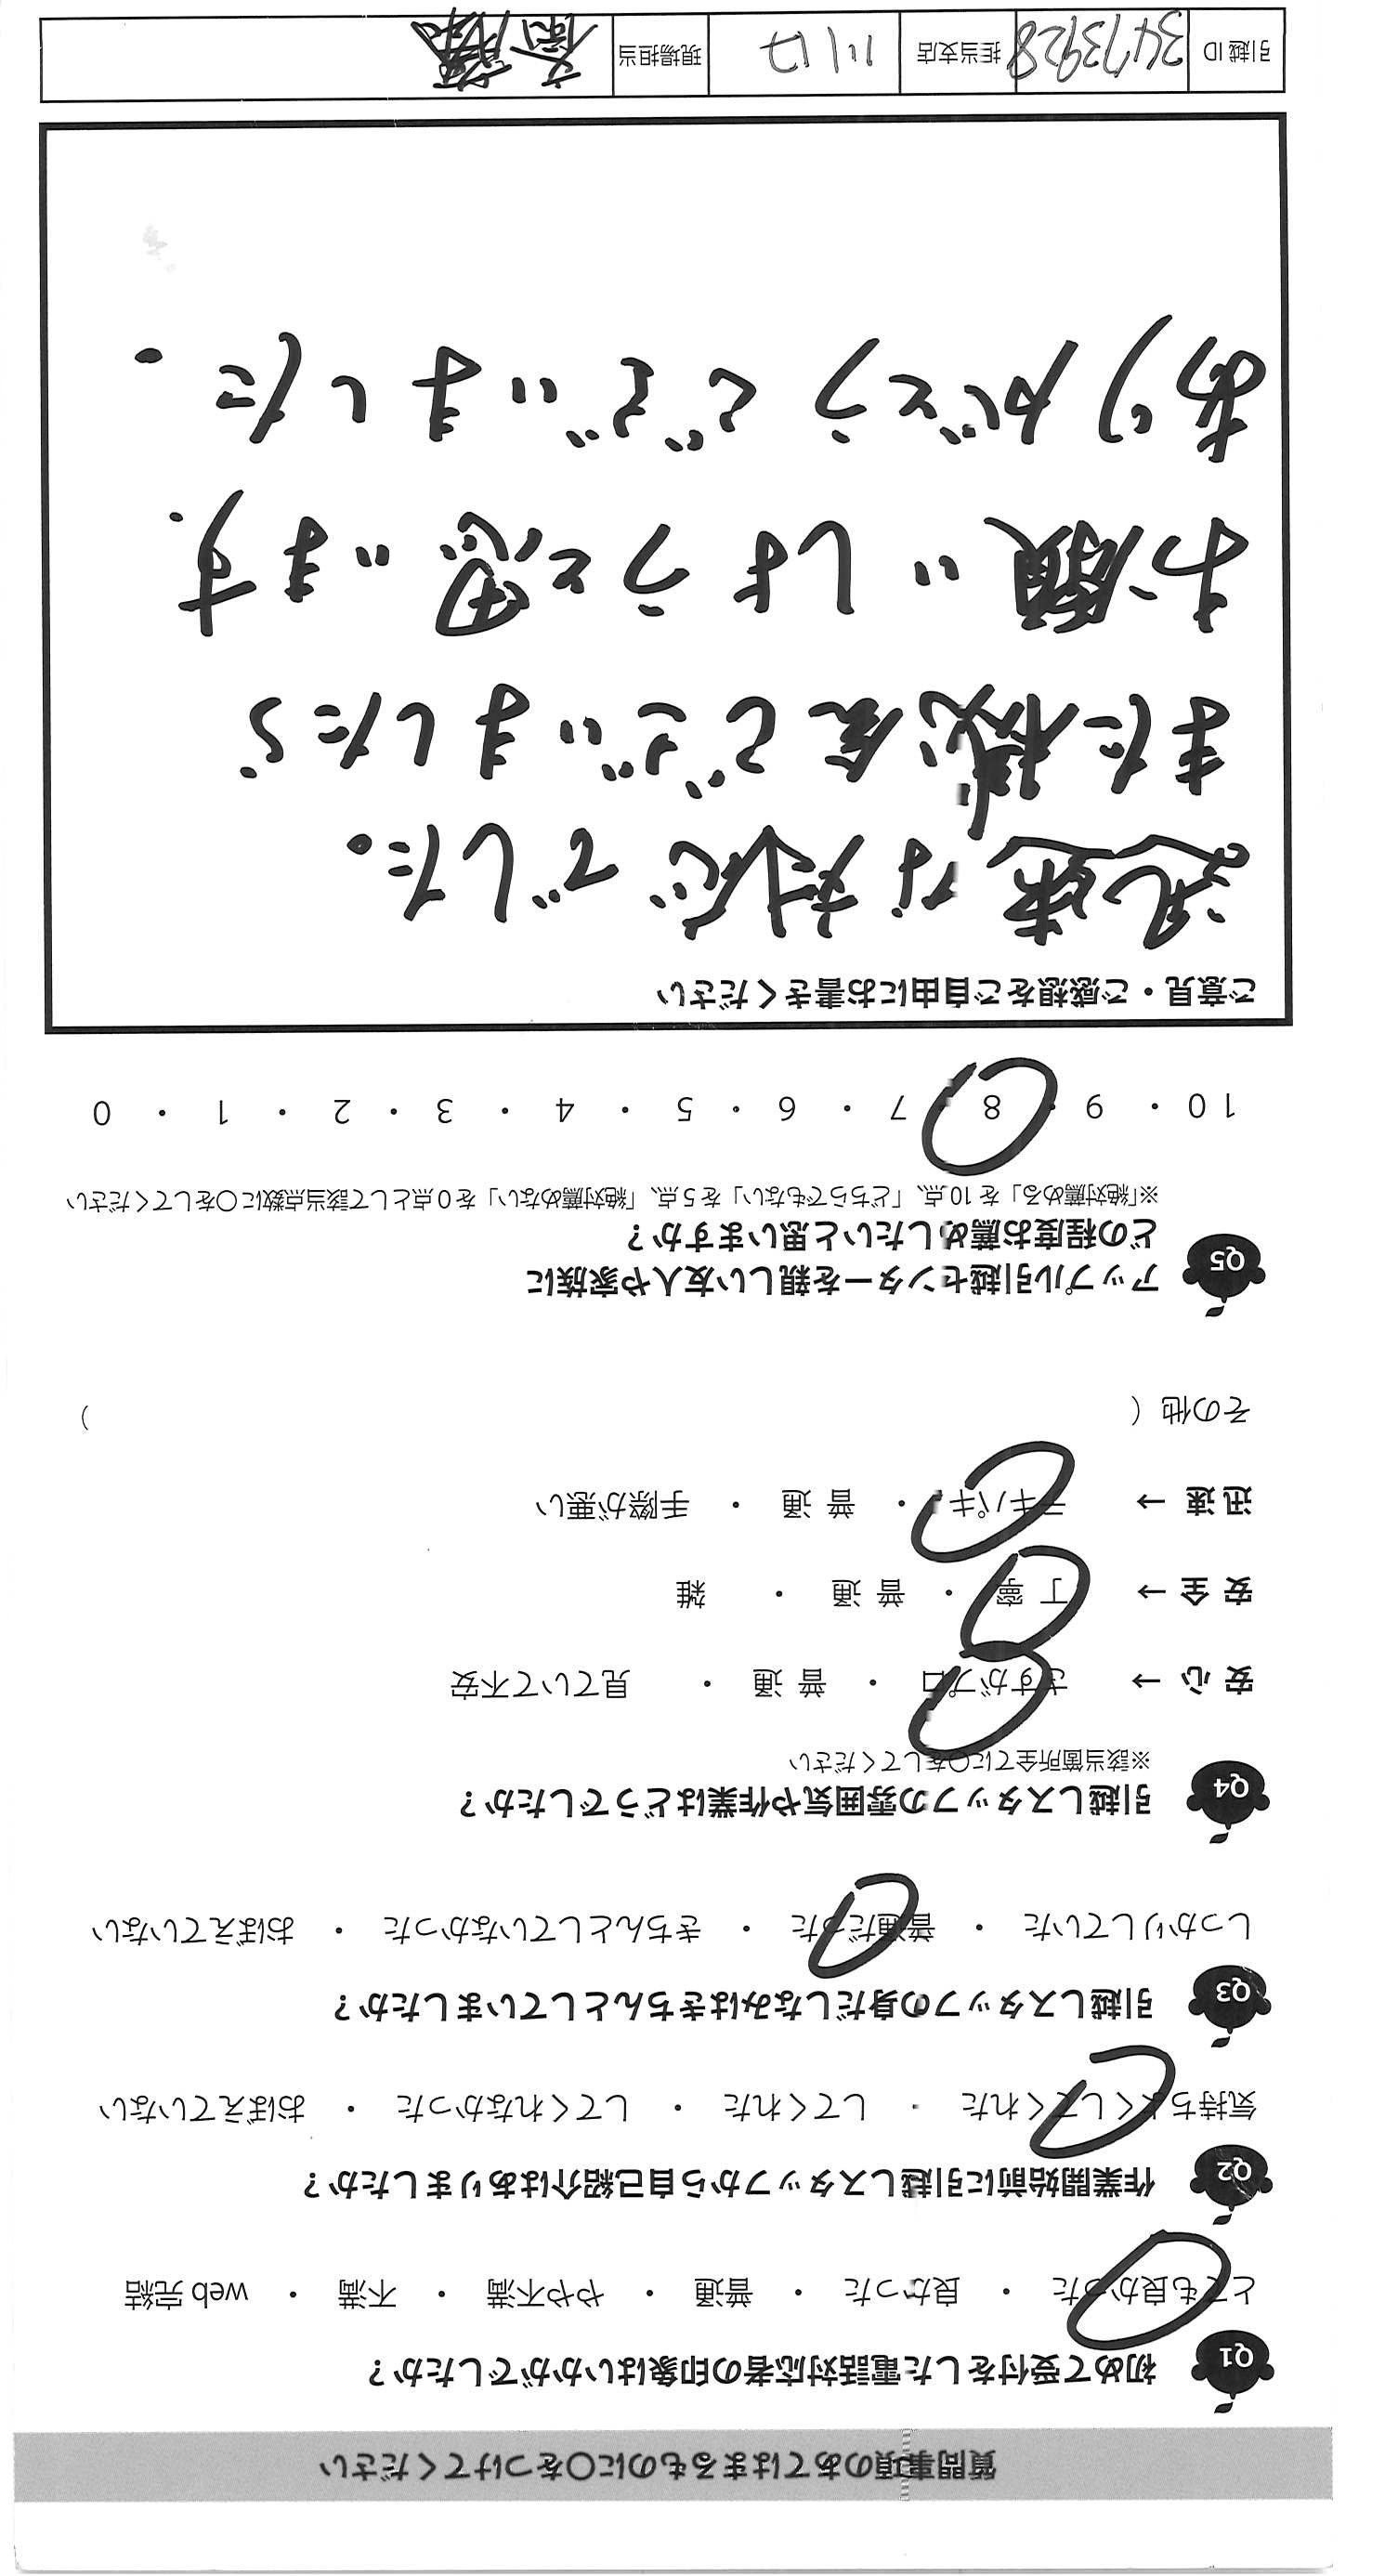 質問事項のあてはまるものに〇をつけてください
Q1 初めて受付をした電話対応者の印象はいかがでしたか？
とても良かった ・ 良かった ・ 普通 ・ やや不満 ・ 不満 ・ web 完結
Q2 作業開始前に引越しスタッフから自己紹介はありましたか？
気持ちよくしてくれた ・ してくれた ・ してくれなかった ・ おぼえていない
Q3 引越しスタッフの身だしなみはきちんとしていましたか？
しっかりしていた ・ 普通だった ・ きちんとしていなかった ・ おぼえていない
Q4 引越しスタッフの雰囲気や作業はどうでしたか？
※該当箇所全てに〇をしてください
安心 → さすがプロ ・ 普通 ・ 見ていて不安
安全 → 丁寧 ・ 普通 ・ 雑
迅速 → テキパキ ・ 普通 ・ 手際が悪い
その他 （ ）
Q5 アップル引越センターを親しい友人や家族に
どの程度お薦めしたいと思いますか？
※「絶対薦める」を10点、「どちらでもない」を5点、「絶対薦めない」を0点として該当点数に〇をしてください
10 ・ 9 ・ 8 ・ 7 ・ 6 ・ 5 ・ 4 ・ 3 ・ 2 ・ 1 ・ 0
ご意見・ご感想をご自由にお書きください
迅速な対応でした。
また機会ございましたら
お願いしようと思います.
ありがとうございました.
引越ID 3473928 担当支店 川口 現場担当 斎藤